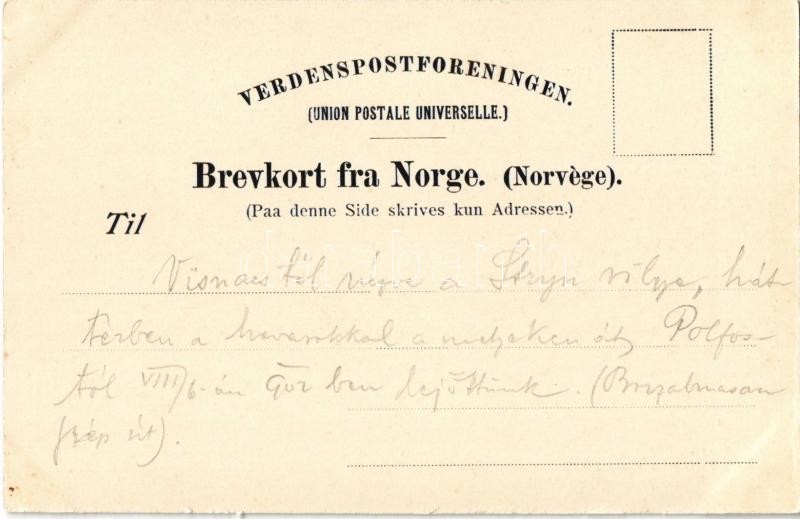 VERDENSPOSTFORENINGEN.
(UNION POSTALE UNIVERSELLE.)
Brevkort fra Norge. (Norvège).
(Paa denne Side skrives kun Adressen.)
Til
Visnaestől nézve a Stryn völgye, hát-
terben a havasokkal a melyeken át Polfos-
tól VIII/6-án ben lejöttünk. (Borzalmasan
szép út).